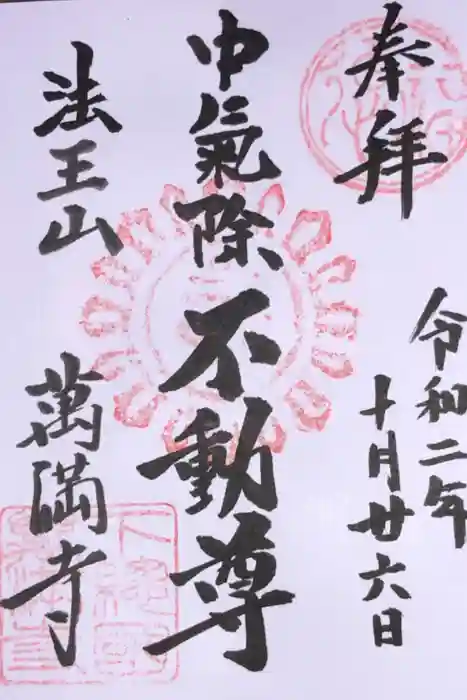 奉拜
令和二年
十月廿六日
中氣除不動尊
法王山
萬満寺